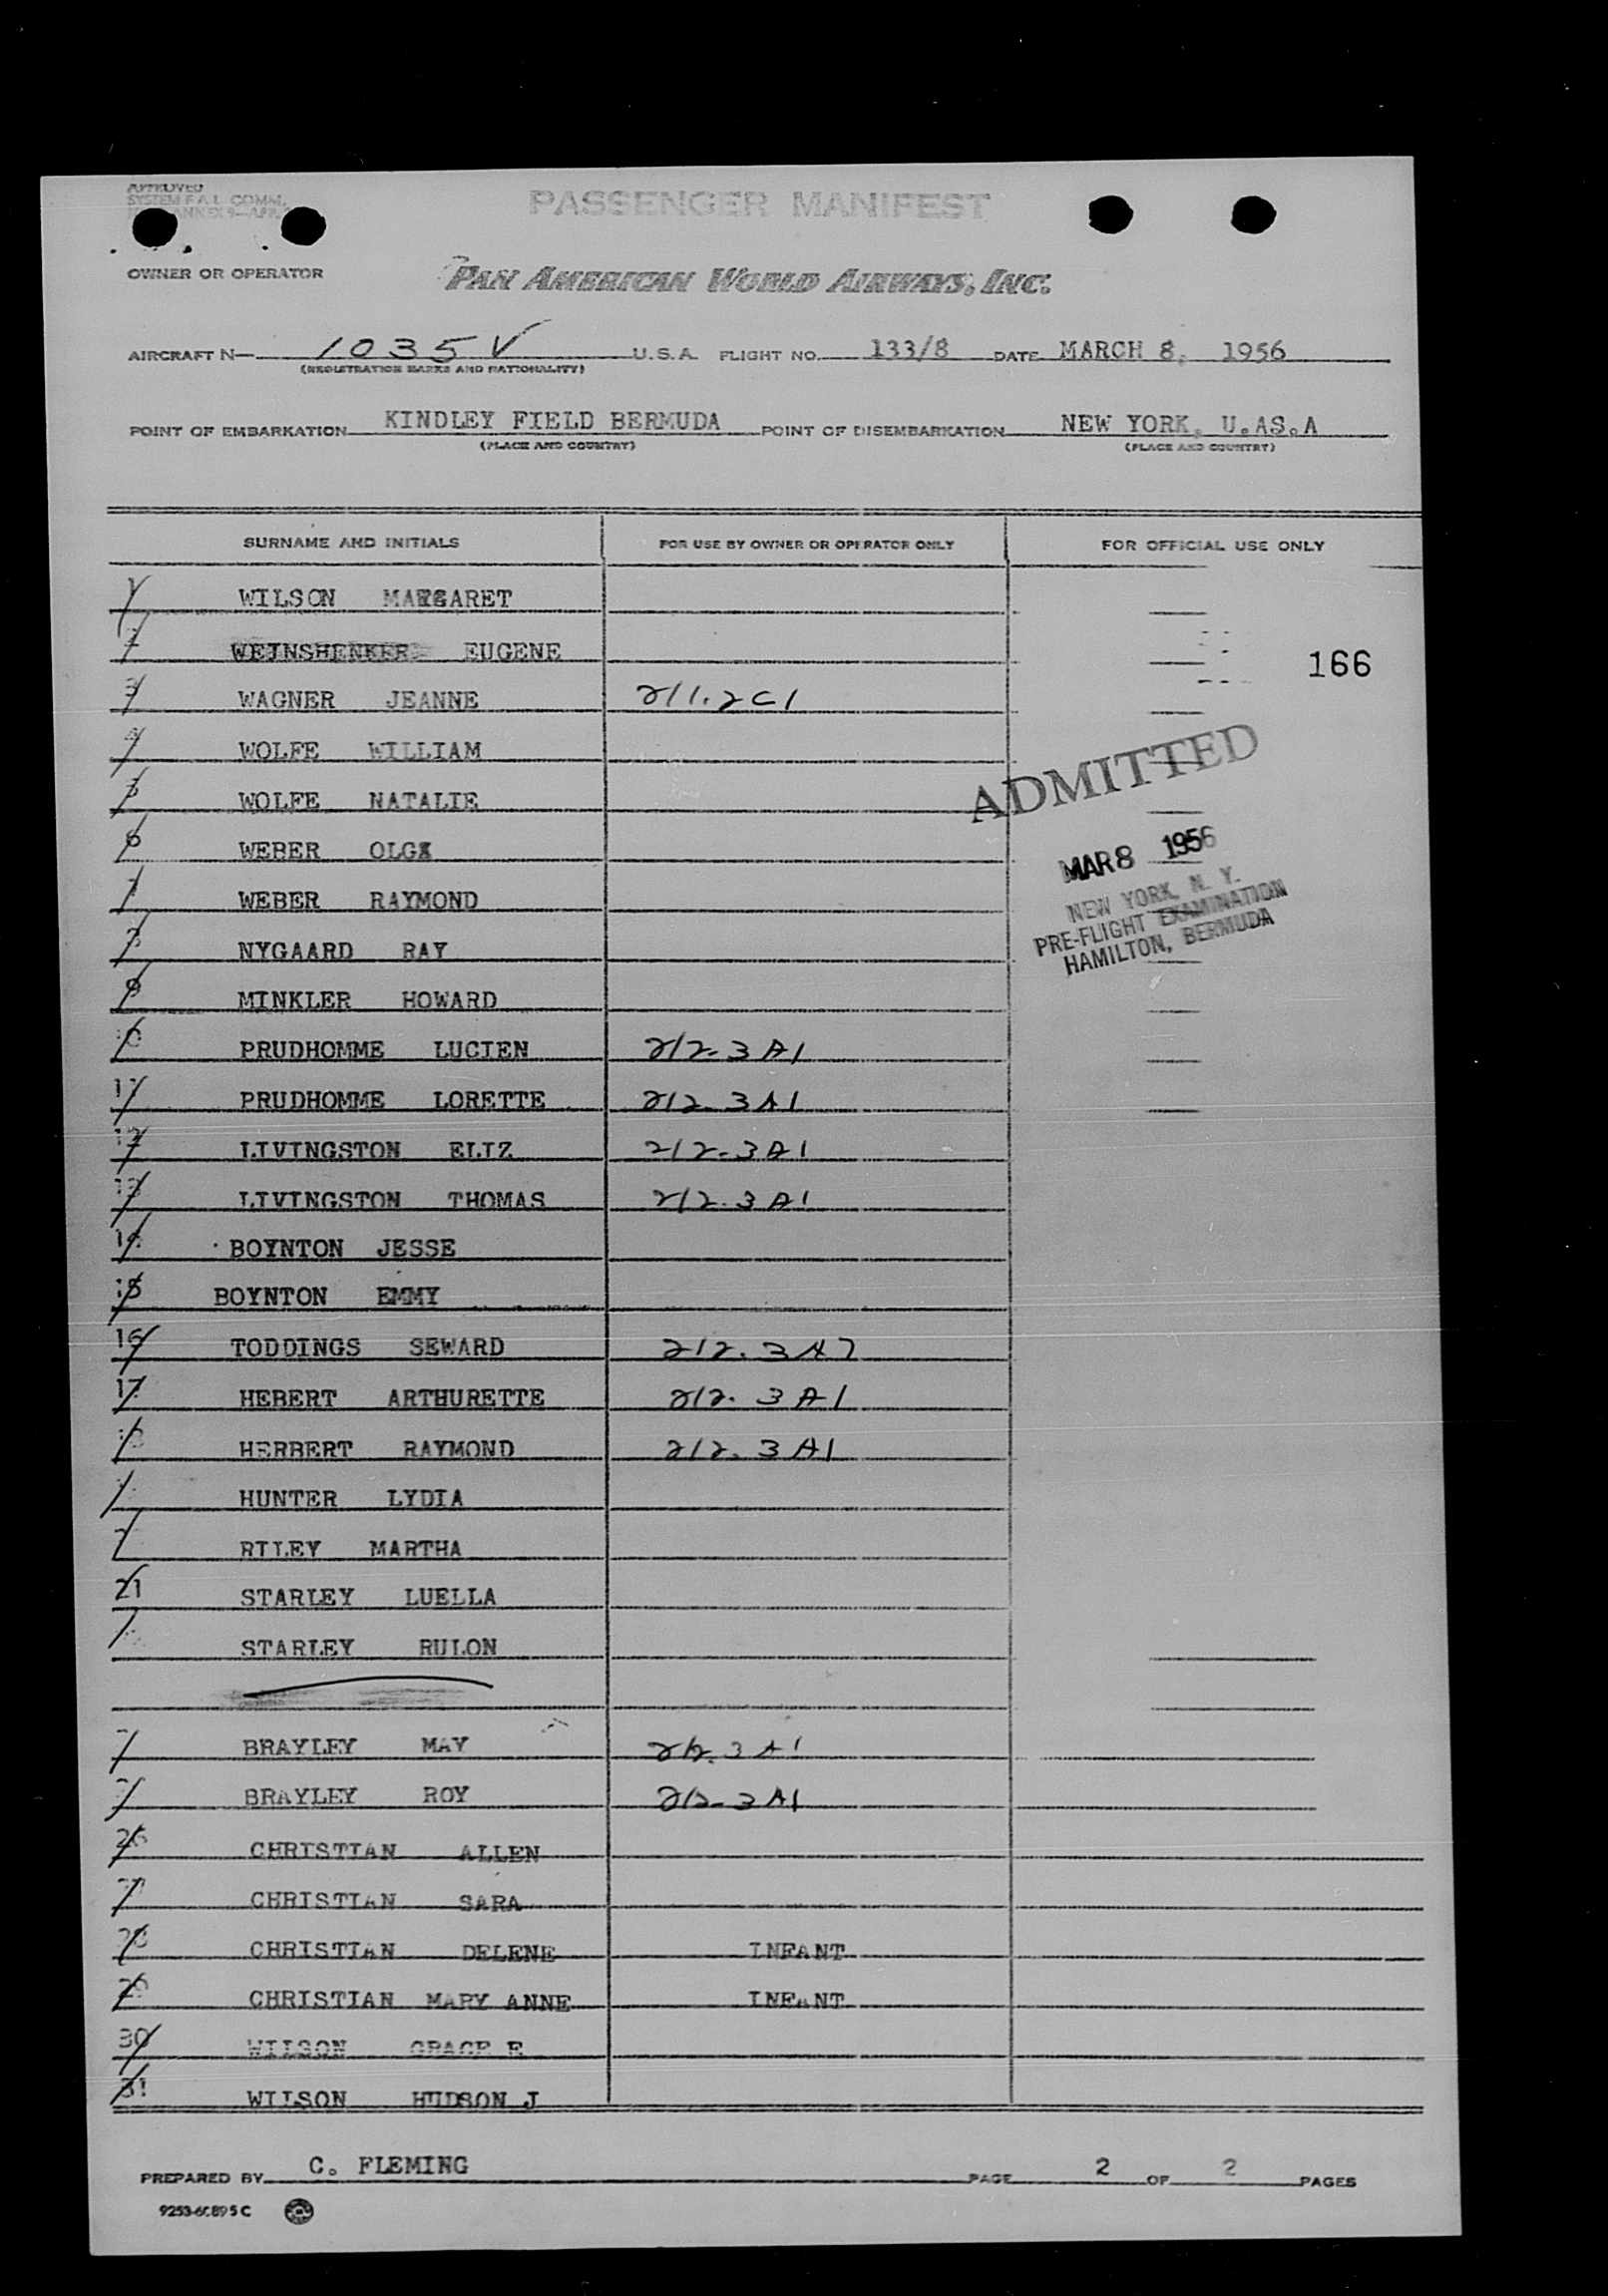 APPROVED
SYSTEM F.A.L. COMM.
PASSENGER MANIFEST
OWNER OR OPERATOR
PAN AMERICAN WORLD AIRWAYS, INC.
AIRCRAFT N— 1035V U.S.A. FLIGHT NO. 133/8 DATE MARCH 8, 1956
(REGISTRATION MARKS AND NATIONALITY)
POINT OF EMBARKATION KINDLEY FIELD BERMUDA POINT OF DISEMBARKATION NEW YORK, U.AS.A
(PLACE AND COUNTRY) (PLACE AND COUNTRY)
SURNAME AND INITIALS FOR USE BY OWNER OR OPERATOR ONLY FOR OFFICIAL USE ONLY
1 WILSON MARGARET
2 WEINSHENKER EUGENE
166
3 WAGNER JEANNE 211.2C1
4 WOLFE WILLIAM
ADMITTED
5 WOLFE NATALIE
6 WEBER OLGA
MAR 8 1956
7 WEBER RAYMOND
NEW YORK, N. Y.
PRE-FLIGHT EXAMINATION
HAMILTON, BERMUDA
8 NYGAARD RAY
9 MINKLER HOWARD
10 PRUDHOMME LUCIEN 212-3A1
11 PRUDHOMME LORETTE 212-3A1
12 LIVINGSTON ELIZ 212-3A1
13 LIVINGSTON THOMAS 212.3A1
14 BOYNTON JESSE
15 BOYNTON EMMY
16 TODDINGS SEWARD 212.3A7
17 HEBERT ARTHURETTE 212.3A1
18 HERBERT RAYMOND 212.3A1
HUNTER LYDIA
RILEY MARTHA
21 STARLEY LUELLA
STARLEY RULON
BRAYLEY MAY 212.3A1
BRAYLEY ROY 212-3A1
26 CHRISTIAN ALLEN
27 CHRISTIAN SARA
28 CHRISTIAN DELENE INFANT
29 CHRISTIAN MARY ANNE INFANT
30 WILSON GRACE E
31 WILSON HUDSON J
PREPARED BY C. FLEMING PAGE 2 OF 2 PAGES